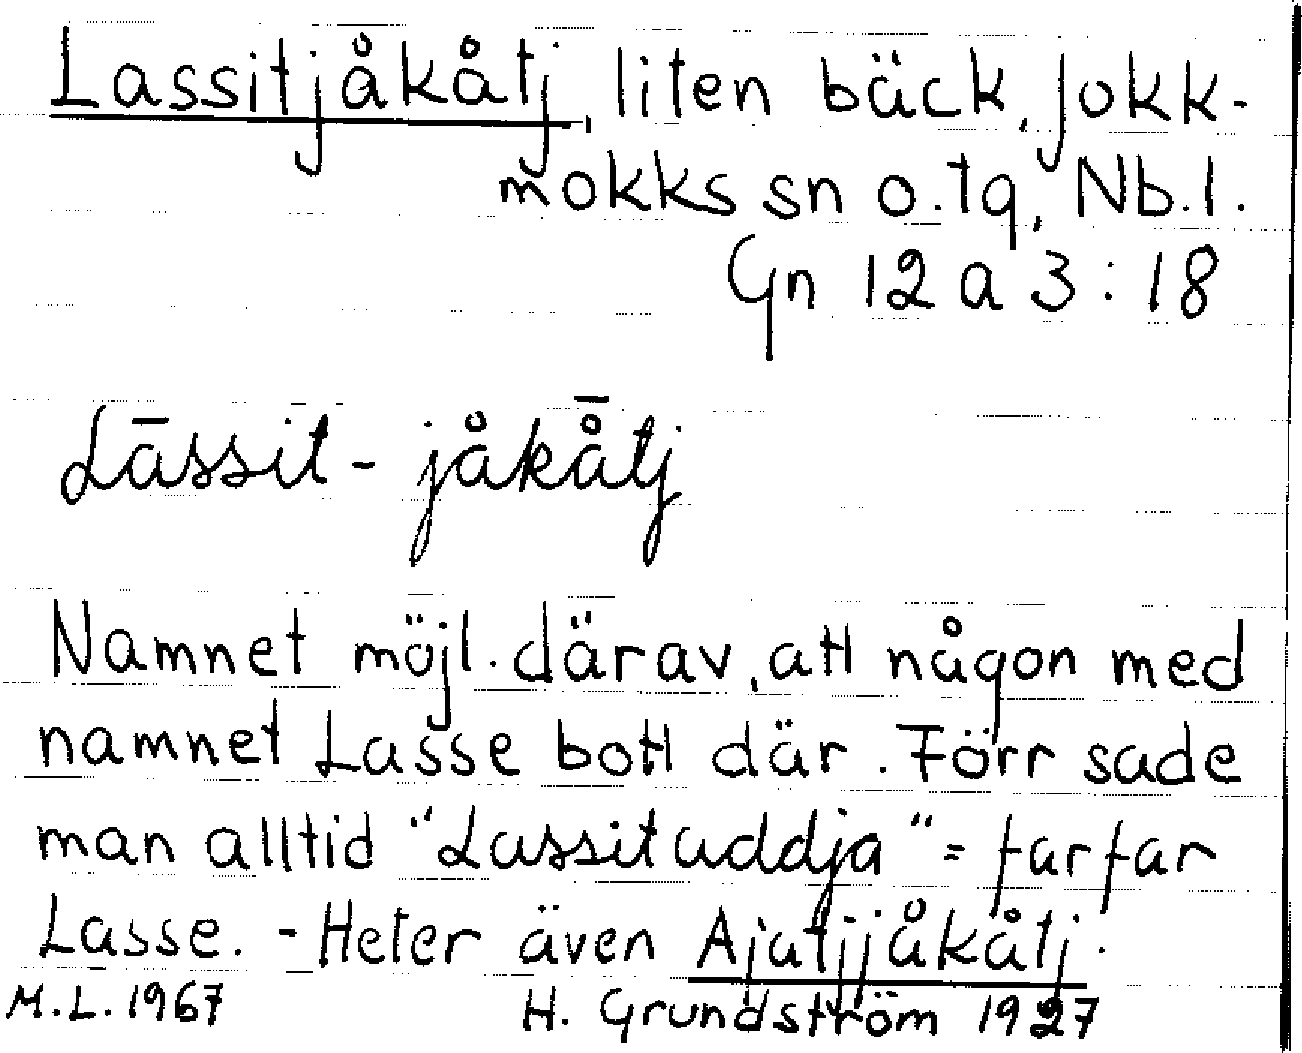 Lassitjåkåtj, liten bäck, Jokk-
mokks sn o. tg, Nb. l.
Gn 12 a 3 : 18
Lāssit - jåkå̄tj
Namnet möjl. därav, att någon med
namnet Lasse bott där. Förr sade
man alltid "Lassituddja" = farfar
Lasse. - Heter även Ajatjjåkåtj.
M.L. 1967 H. Grundström 1927